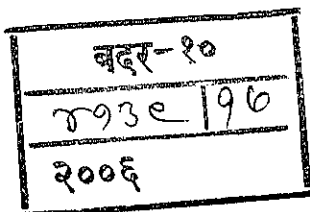 बदर-१०
४१३९ | १७
२००६